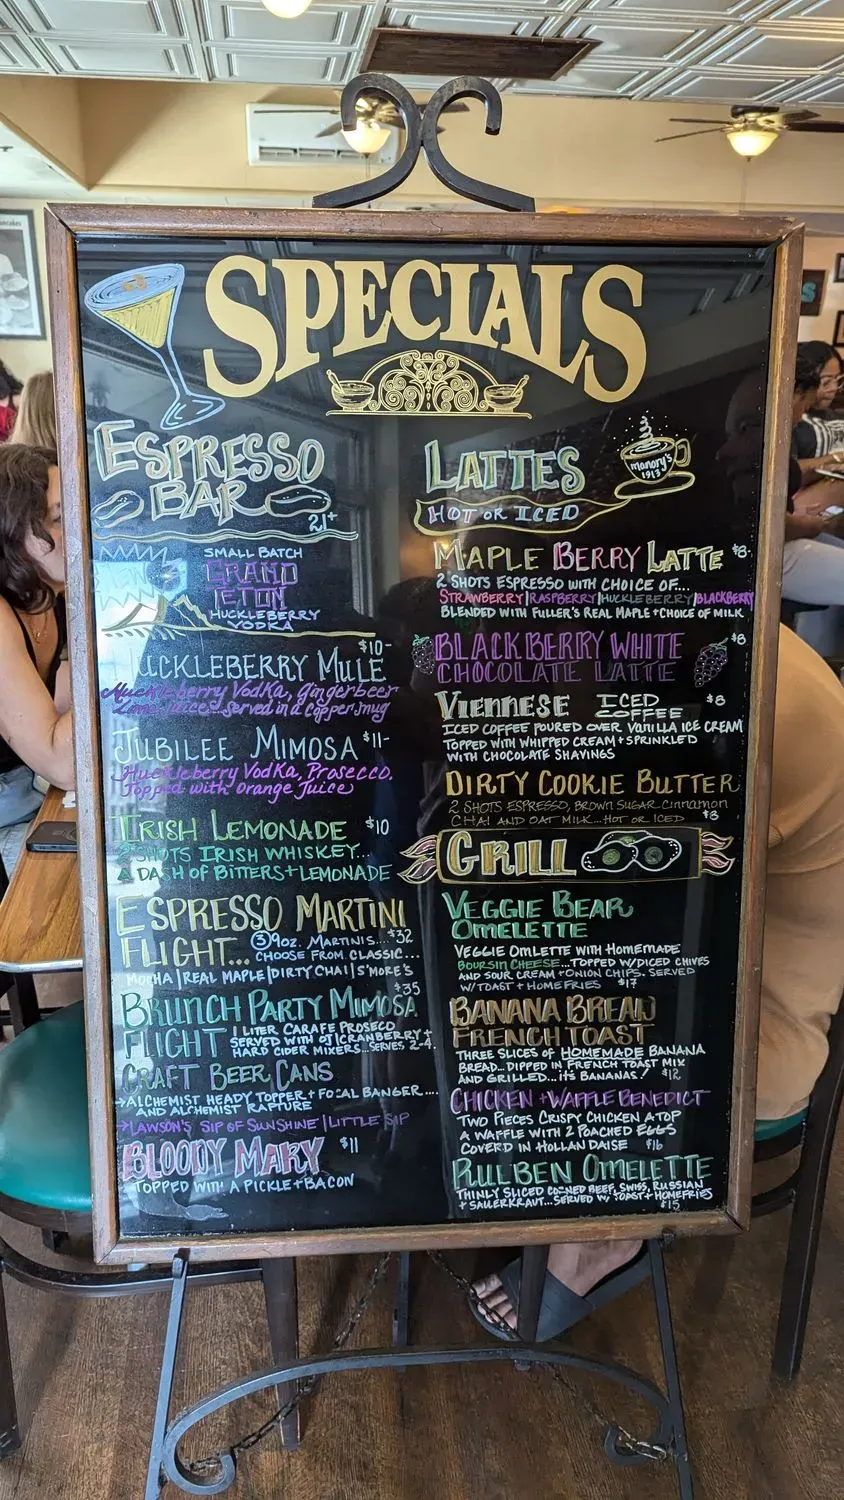 SPECIALS
ESPRESSO
BAR
21+
NEW
SMALL BATCH
GRAND
TETON
HUCKLEBERRY
VODKA
HUCKLEBERRY MULE $10-
Huckleberry Vodka, gingerbeer
Lime Juice...served in a copper mug
JUBILEE MIMOSA $11-
Huckleberry Vodka, Prosecco,
Topped with Orange Juice
IRISH LEMONADE $10
2 SHOTS IRISH WHISKEY...
A DASH OF BITTERS + LEMONADE
ESPRESSO MARTINI
FLIGHT... 3 9oz. MARTINIS... $32
CHOOSE FROM CLASSIC...
MOCHA | REAL MAPLE | DIRTY CHAI | S'MORE'S
BRUNCH PARTY MIMOSA $35
FLIGHT 1 LITER CARAFE PROSECO
SERVED WITH OJ | CRANBERRY +
HARD CIDER MIXERS... SERVES 2-4
CRAFT BEER CANS
→ALCHEMIST HEADY TOPPER + FOCAL BANGER....
AND ALCHEMIST RAPTURE
→LAWSON'S SIP OF SUNSHINE | LITTLE SIP
BLOODY MARY $11
TOPPED WITH A PICKLE + BACON
LATTES
HOT OR ICED
manory's
1913
MAPLE BERRY LATTE $8-
2 SHOTS ESPRESSO WITH CHOICE OF....
STRAWBERRY | RASPBERRY | HUCKLEBERRY | BLACKBERRY
BLENDED WITH FULLER'S REAL MAPLE + CHOICE OF MILK
BLACKBERRY WHITE $8
CHOCOLATE LATTE
VIENNESE ICED COFFEE $8
ICED COFFEE POURED OVER VANILLA ICE CREAM
TOPPED WITH WHIPPED CREAM + SPRINKLED
WITH CHOCOLATE SHAVINGS
DIRTY COOKIE BUTTER
2 SHOTS ESPRESSO, BROWN SUGAR cinnamon
CHAI AND OAT MILK...HOT OR ICED $8
GRILL
VEGGIE BEAR
OMELETTE
VEGGIE OMLETTE WITH HOMEMADE
BOURSIN CHEESE...TOPPED W/DICED CHIVES
AND SOUR CREAM + ONION CHIPS. SERVED
W/TOAST + HOMEFRIES $17
BANANA BREAD
FRENCH TOAST
THREE SLICES OF HOMEMADE BANANA
BREAD...DIPPED IN FRENCH TOAST MIX
AND GRILLED...it's BANANAS! $12
CHICKEN + WAFFLE BENEDICT
TWO PIECES CRISPY CHICKEN ATOP
A WAFFLE WITH 2 POACHED EGGS
COVERD IN HOLLANDAISE $16
RUEBEN OMELETTE
THINLY SLICED CORNED BEEF, SWISS, RUSSIAN
+ SAUERKRAUT...SERVED W/TOAST + HOMEFRIES
$15